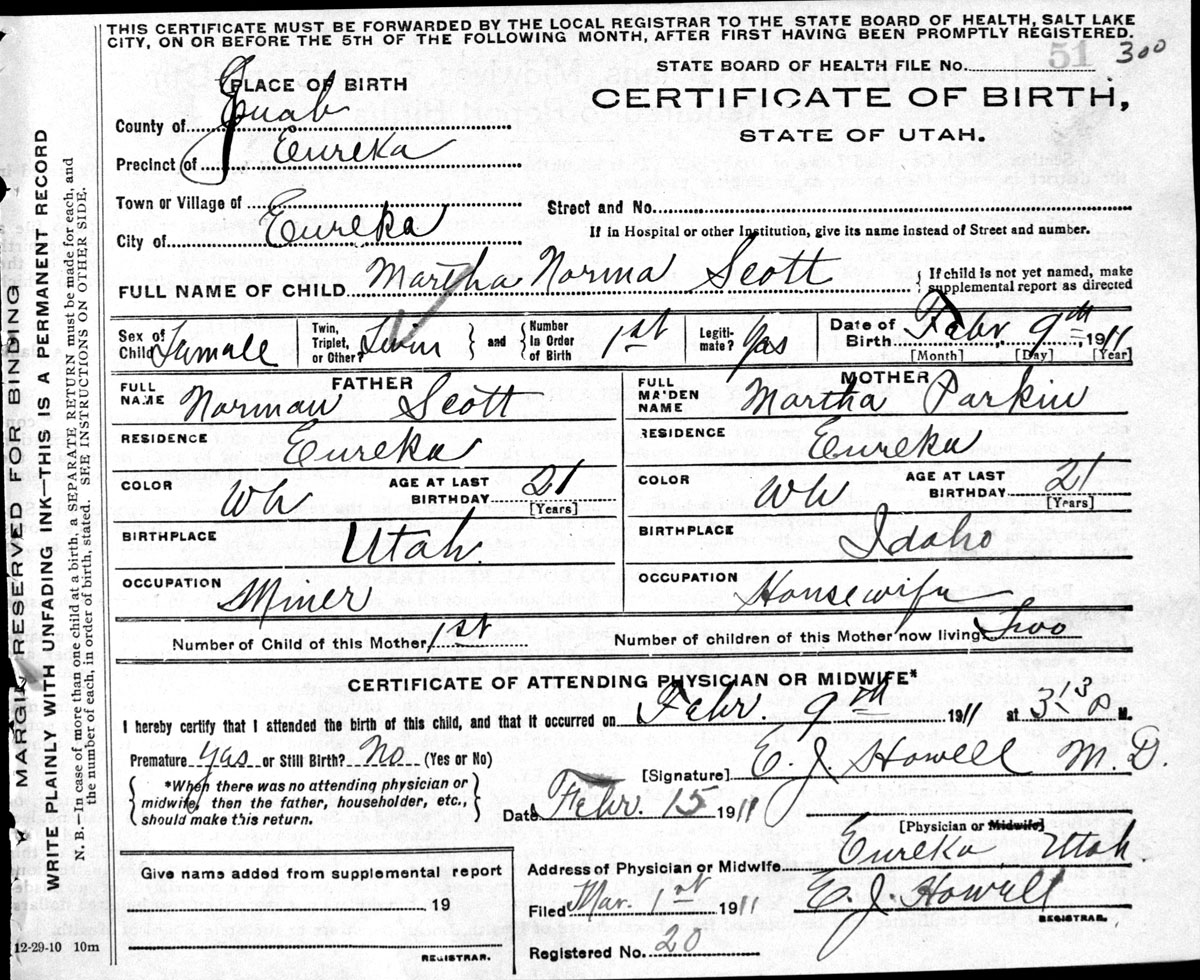 THIS CERTIFICATE MUST BE FORWARDED BY THE LOCAL REGISTRAR TO THE STATE BOARD OF HEALTH, SALT LAKE
CITY, ON OR BEFORE THE 5TH OF THE FOLLOWING MONTH, AFTER FIRST HAVING BEEN PROMPTLY REGISTERED.
STATE BOARD OF HEALTH FILE No. 51 300
PLACE OF BIRTH
CERTIFICATE OF BIRTH,
STATE OF UTAH.
County of Juab
Precinct of Eureka
Town or Village of
Street and No.
City of Eureka
If in Hospital or other Institution, give its name instead of Street and number.
FULL NAME OF CHILD Martha Norma Scott
{ If child is not yet named, make
supplemental report as directed
Sex of Child Female
Twin, Triplet, or Other? Twin } and { Number In Order of Birth 1st
Legiti-mate? Yas
Date of Birth Febr. 9th, 1911
[Month] [Day] [Year]
FATHER
FULL NAME Norman Scott
RESIDENCE Eureka
COLOR Wh
AGE AT LAST BIRTHDAY 21
[Years]
BIRTHPLACE Utah.
OCCUPATION Miner
MOTHER
FULL MAIDEN NAME Martha Parkin
RESIDENCE Eureka
COLOR Wh
AGE AT LAST BIRTHDAY 21
[Years]
BIRTHPLACE Idaho
OCCUPATION Housewife
Number of Child of this Mother 1st
Number of children of this Mother now living Two
CERTIFICATE OF ATTENDING PHYSICIAN OR MIDWIFE*
I hereby certify that I attended the birth of this child, and that it occurred on Febr. 9th 1911 at 3 P M.
Premature Yas or Still Birth? No (Yes or No)
{ *When there was no attending physician or
midwife, then the father, householder, etc.,
should make this return. }
[Signature] E. J. Howell M. D.
Date Febr. 15 1911
[Physician or Midwife]
Address of Physician or Midwife Eureka Utah.
Give name added from supplemental report
19
REGISTRAR.
Filed Mar. 1st 1911 E. J. Howell
REGISTRAR.
Registered No. 20
12-29-10 10m
V MARGIN RESERVED FOR BINDING
WRITE PLAINLY WITH UNFADING INK—THIS IS A PERMANENT RECORD
N. B.—In case of more than one child at a birth, a SEPARATE RETURN must be made for each, and
the number of each, in order of birth, stated. SEE INSTRUCTIONS ON OTHER SIDE.